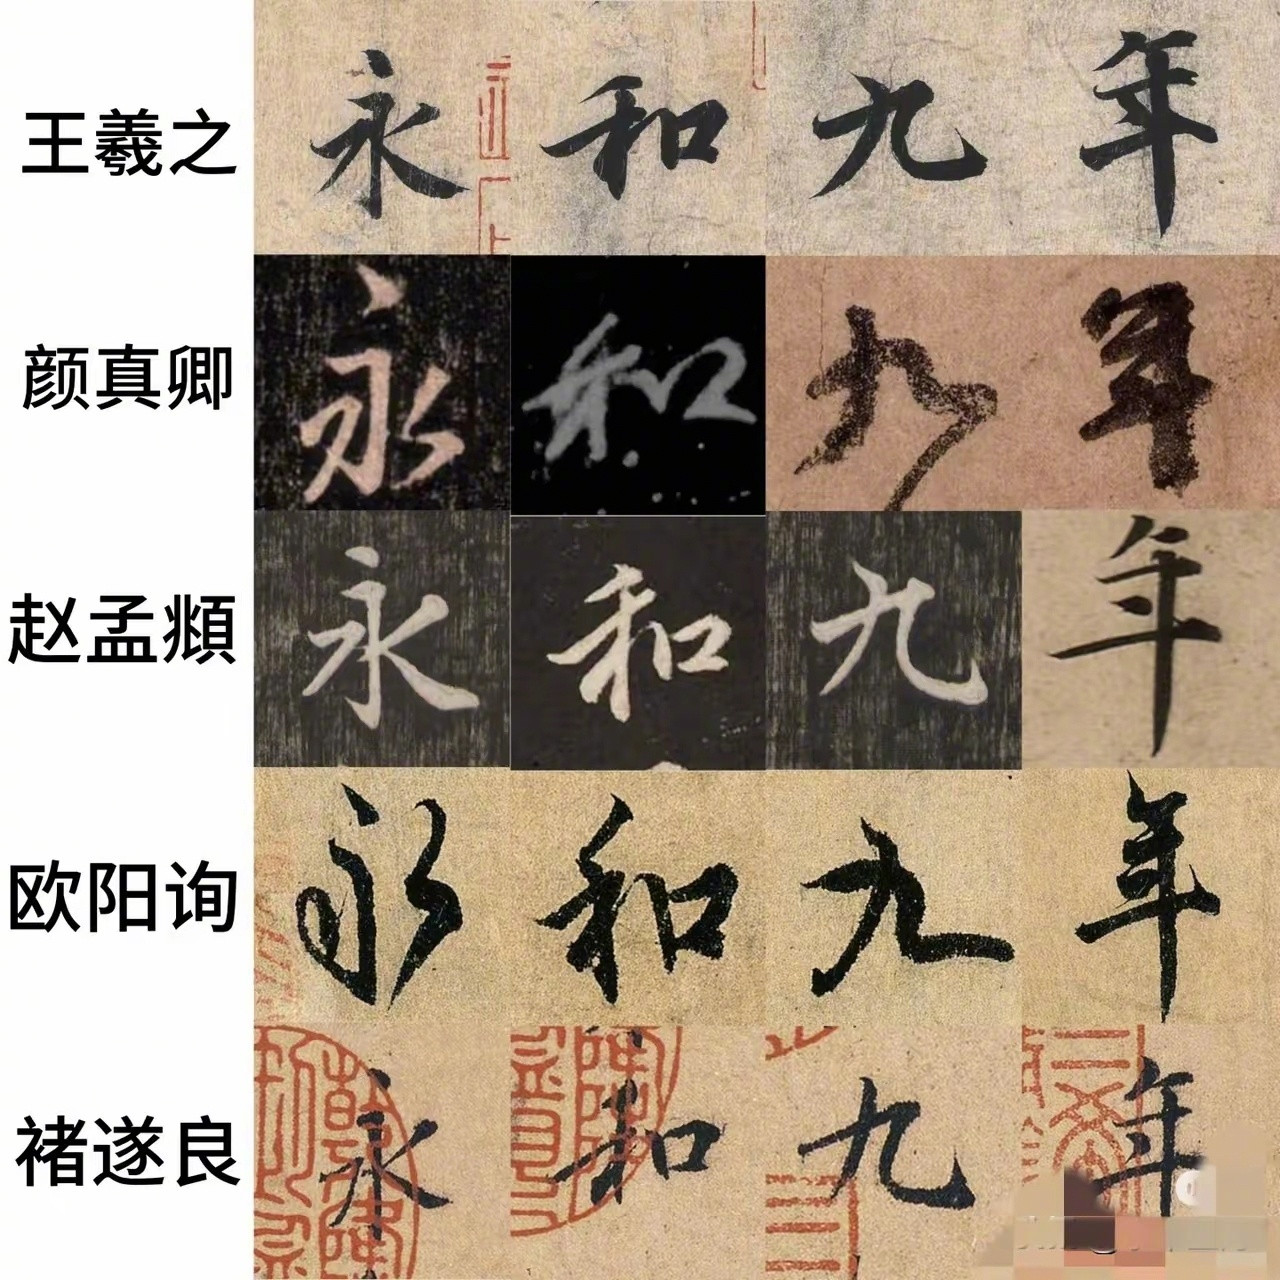 王羲之 永 和 九 年
颜真卿 永 和 九 年
赵孟頫 永 和 九 年
欧阳询 永 和 九 年
褚遂良 永 和 九 年